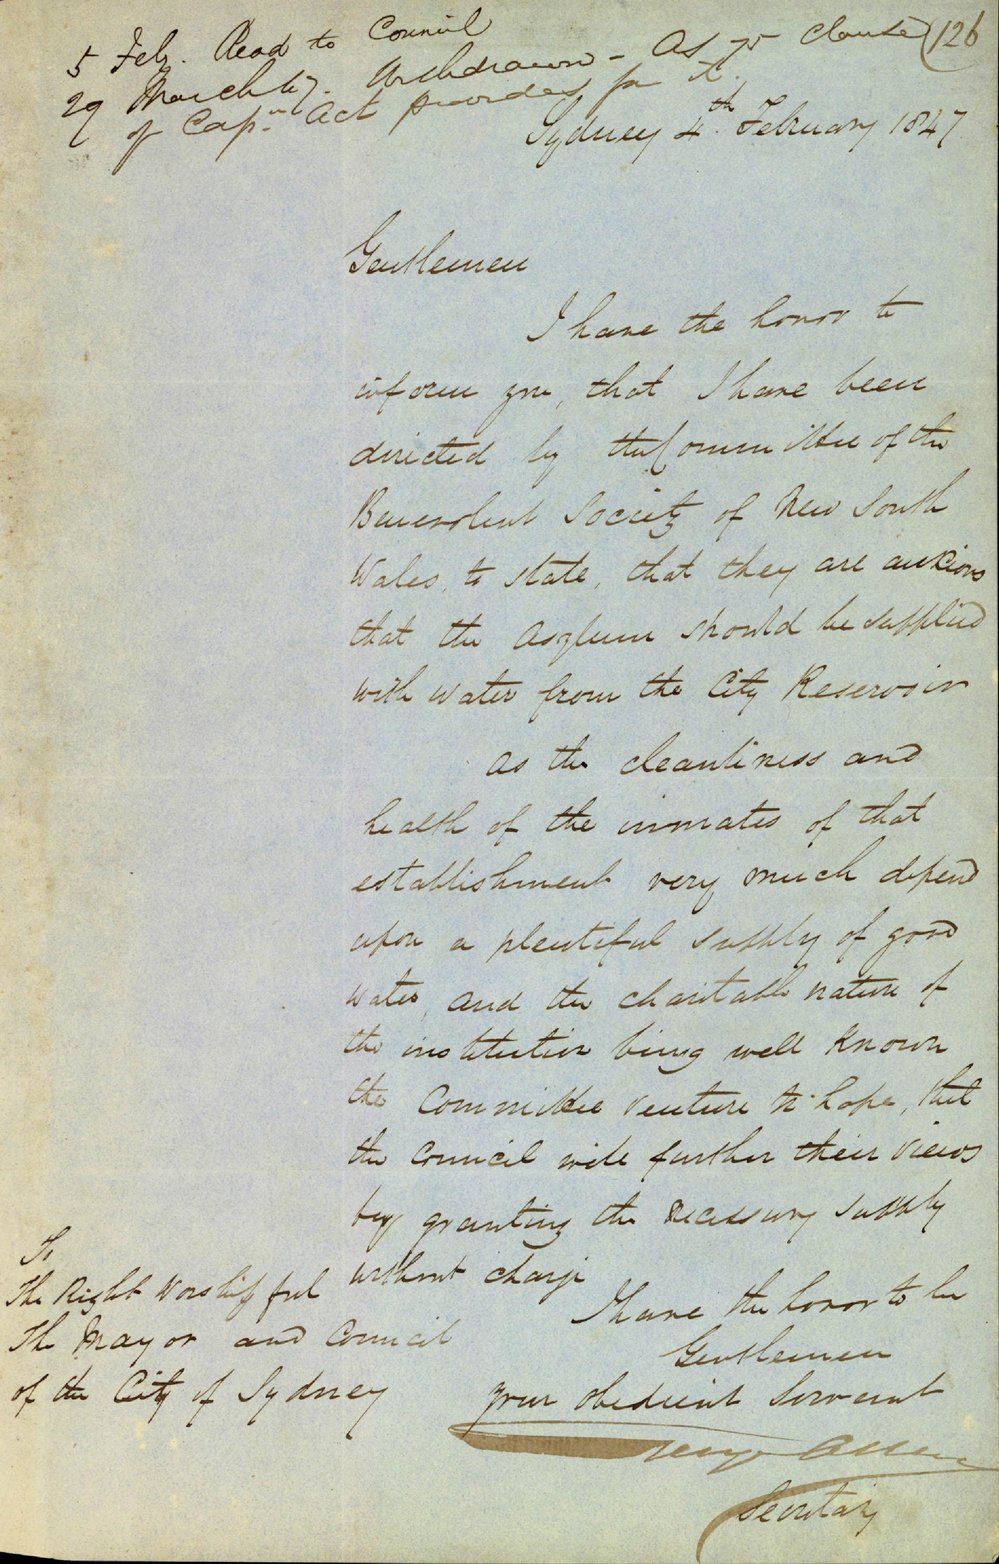 126
5 Feby. Read to Council
29 March 47. Withdrawn - As 75 Clause
of Capn Act provides for it.
Sydney 4th. February 1847
Gentlemen
I have the honor to
inform you, that I have been
directed by the Committee of the
Benevolent Society of New South
Wales, to state, that they are anxious
that the Asylum should be supplied
with water from the City Reservoir
As the cleanliness and
health of the inmates of that
establishment very much depend
upon a plentiful supply of good
water, and the charitable nature of
the institution being well known
the Committee venture to hope, that
the Council will further their views
by granting the necessary supply
without charge
I have the honor to be
Gentlemen
Your obedient Servant
George Allen
Secretary
To
The Right Worshipful
The Mayor and Council
of the City of Sydney